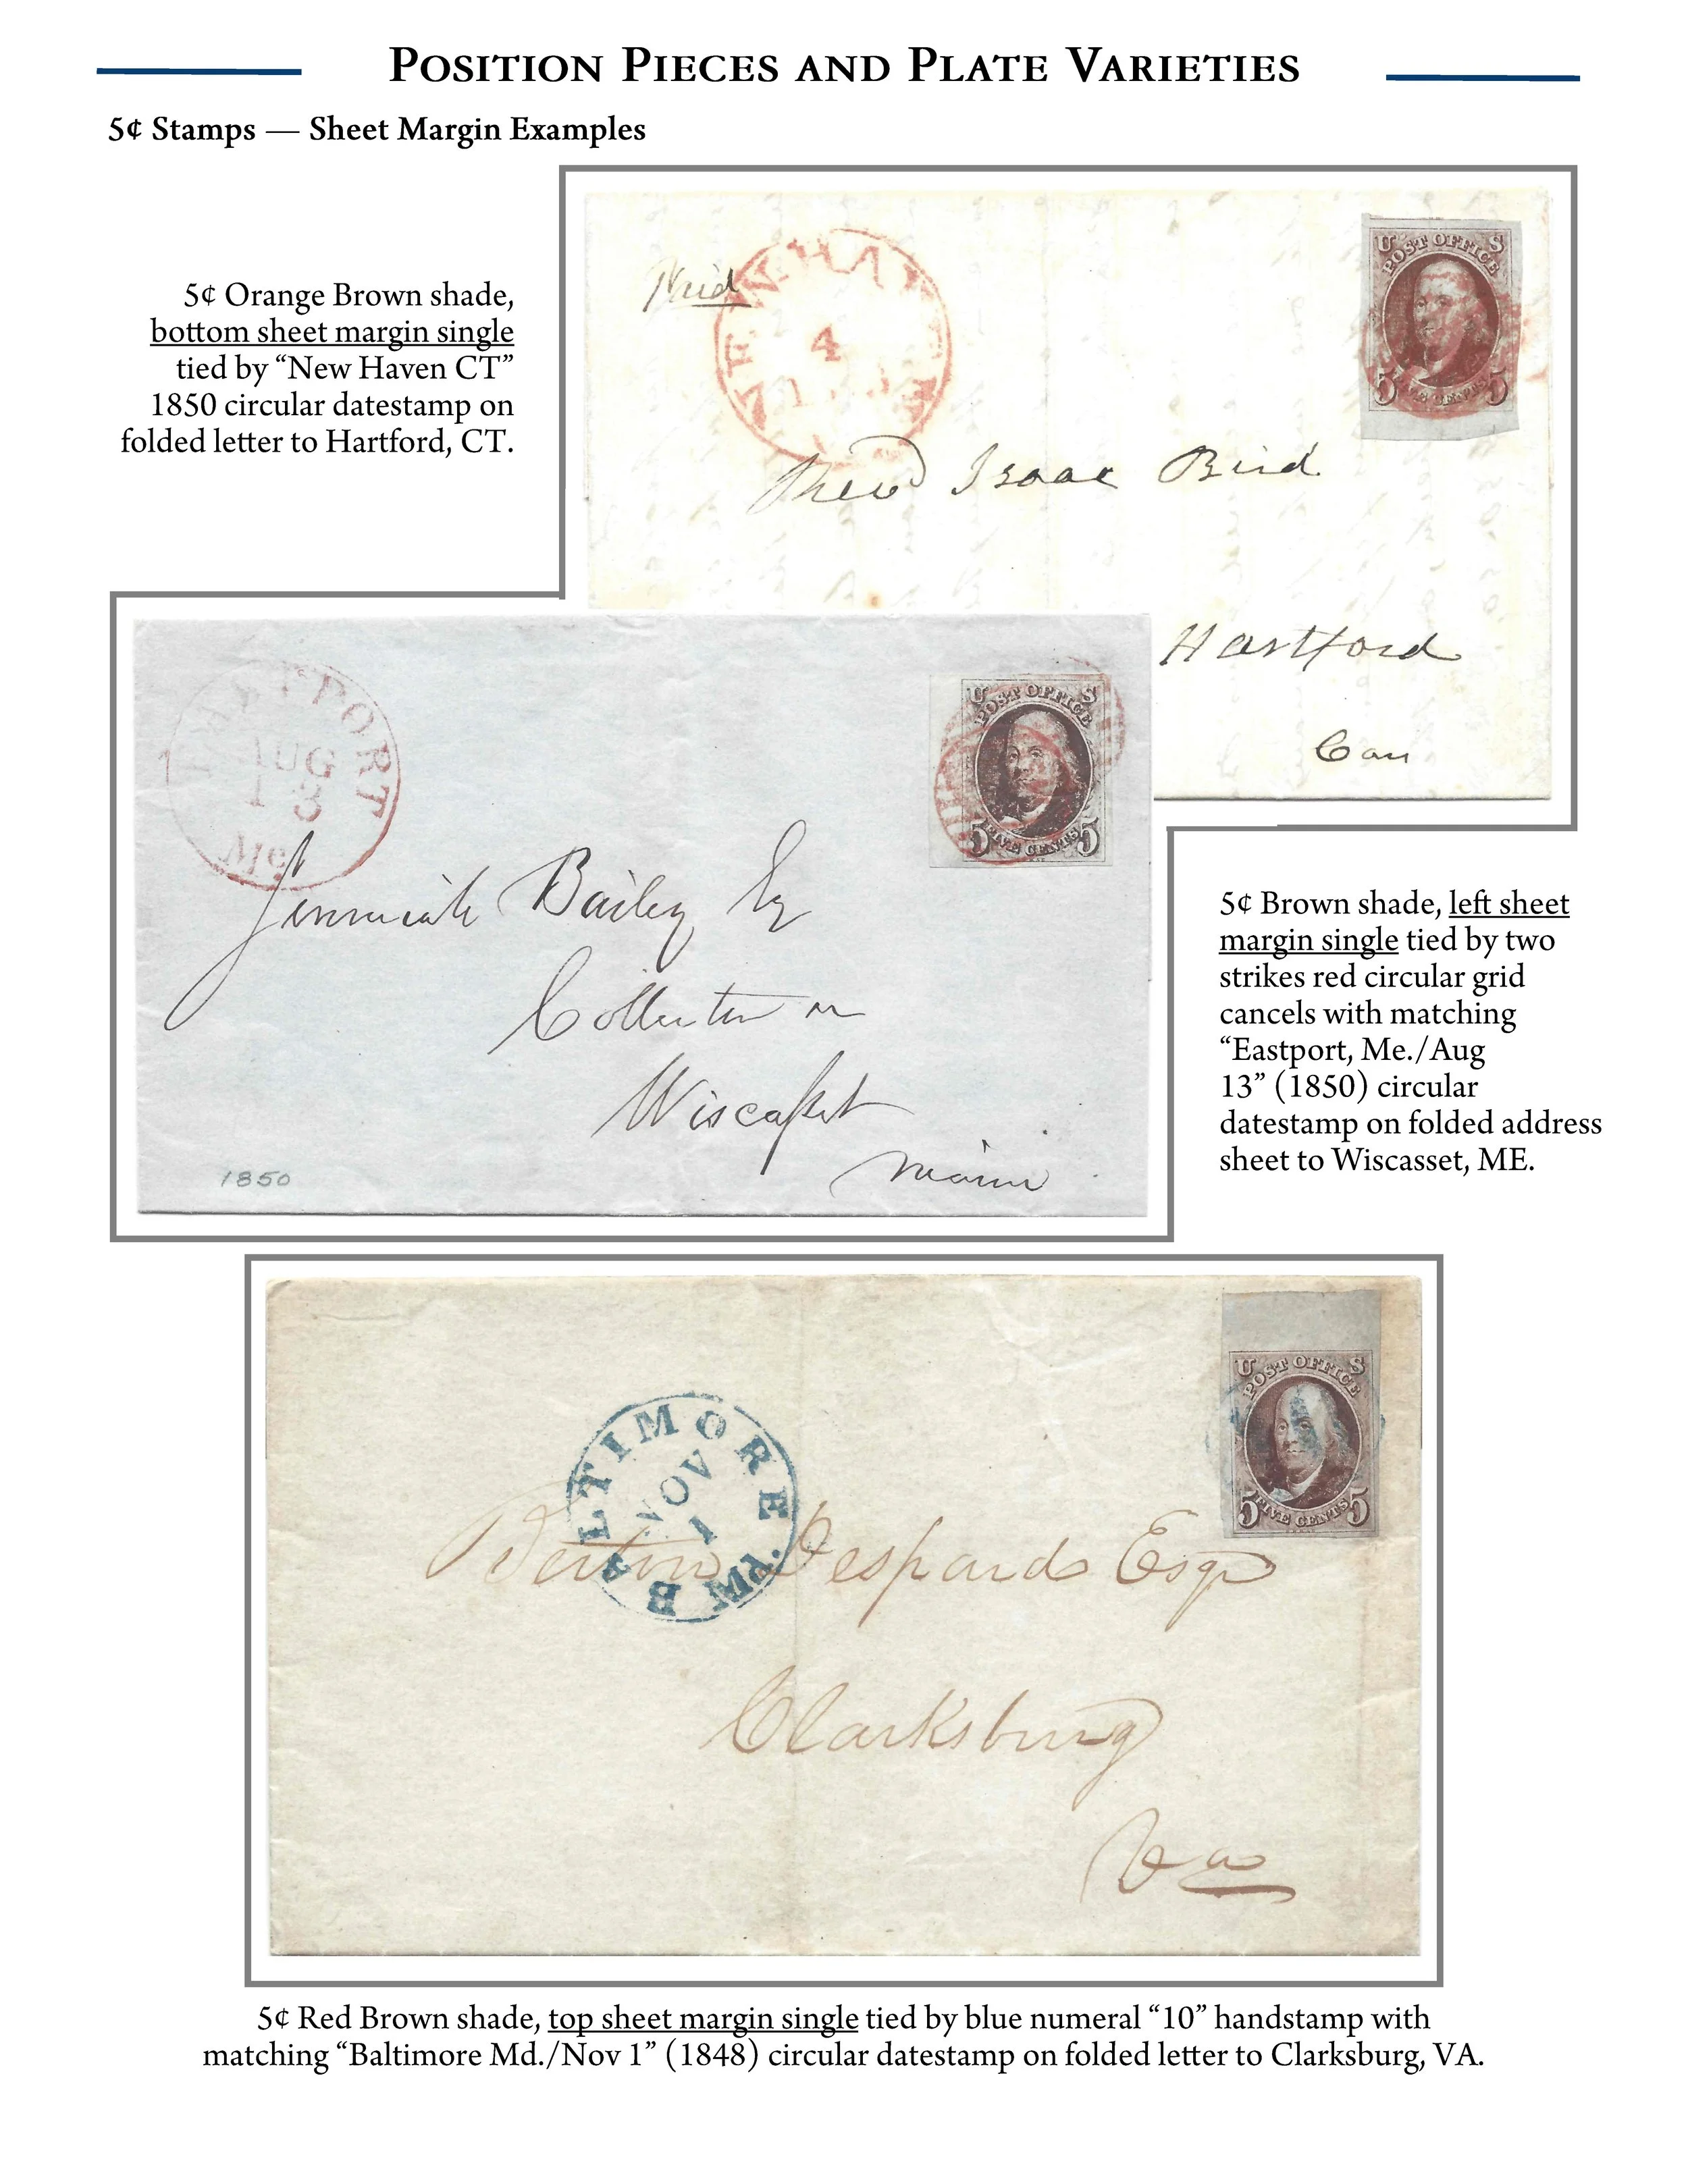 Position Pieces and Plate Varieties
5¢ Stamps — Sheet Margin Examples
5¢ Orange Brown shade,
bottom sheet margin single
tied by “New Haven CT”
1850 circular datestamp on
folded letter to Hartford, CT.
Paid
4
U S
POST OFFICE
5 5
Revd Isaac Bird
Hartford
Con
PORT
AUG
13
Me.
U S
POST OFFICE
5 FIVE CENTS 5
Jeremiah Bailey Esq
Collector
Wiscasset
Maine
1850
5¢ Brown shade, left sheet
margin single tied by two
strikes red circular grid
cancels with matching
“Eastport, Me./Aug
13” (1850) circular
datestamp on folded address
sheet to Wiscasset, ME.
U S
POST OFFICE
5 FIVE CENTS 5
BALTIMORE Md.
NOV
1
Despards Esqr
Clarksburg
Va
5¢ Red Brown shade, top sheet margin single tied by blue numeral “10” handstamp with
matching “Baltimore Md./Nov 1” (1848) circular datestamp on folded letter to Clarksburg, VA.